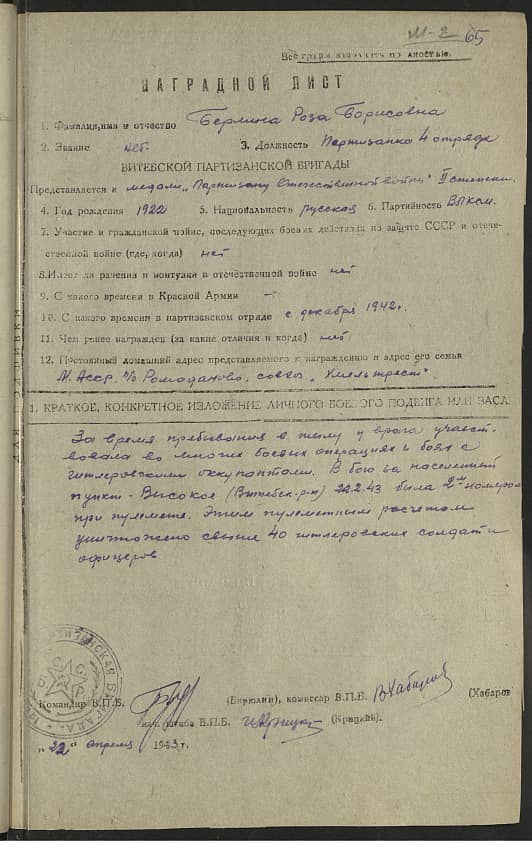 М-2 65
Все графы заполнять полностью.
НАГРАДНОЙ ЛИСТ
1. Фамилия, имя и отчество Берлина Роза Борисовна
2. Звание нет. 3. Должность Партизанка 4 отряда
ВИТЕБСКОЙ ПАРТИЗАНСКОЙ БРИГАДЫ
Представляется к медали „Партизану Отечественной войны" II степени.
4. Год рождения 1922 5. Национальность русская 6. Партийность ВЛКСМ.
7. Участие в гражданской войне, последующих боевых действиях по защите СССР и отече-
ственной войне (где, когда) нет
8. Имеет ли ранения и контузии в отечественной войне нет
9. С какого времени в Красной Армии —
10. С какого времени в партизанском отряде с декабря 1942 г.
11. Чем ранее награжден (за какие отличия и когда) нет
12. Постоянный домашний адрес представляемого к награждению и адрес его семьи
М. Асср. п/о Ромоданово, совхоз
1. КРАТКОЕ, КОНКРЕТНОЕ ИЗЛОЖЕНИЕ ЛИЧНОГО БОЕВОГО ПОДВИГА ИЛИ ЗАСЛ
За время пребывания в тылу у врага участ-
вовала во многих боевых операциях и боях с
гитлеровскими оккупантами. В бою за населенный
пункт - Высокое (Витебск. р-н) 22.2.43 была 2ым номером
при пулемете. Этим пулеметным расчетом
уничтожено свыше 40 гитлеровских солдат и
офицеров
Командир В.П.Б. (Бирюлин), комиссар В.П.Б. ВХабаров (Хабаров
нач. штаба В.П.Б. (Крицкий).
„22" апреля 1943 г.